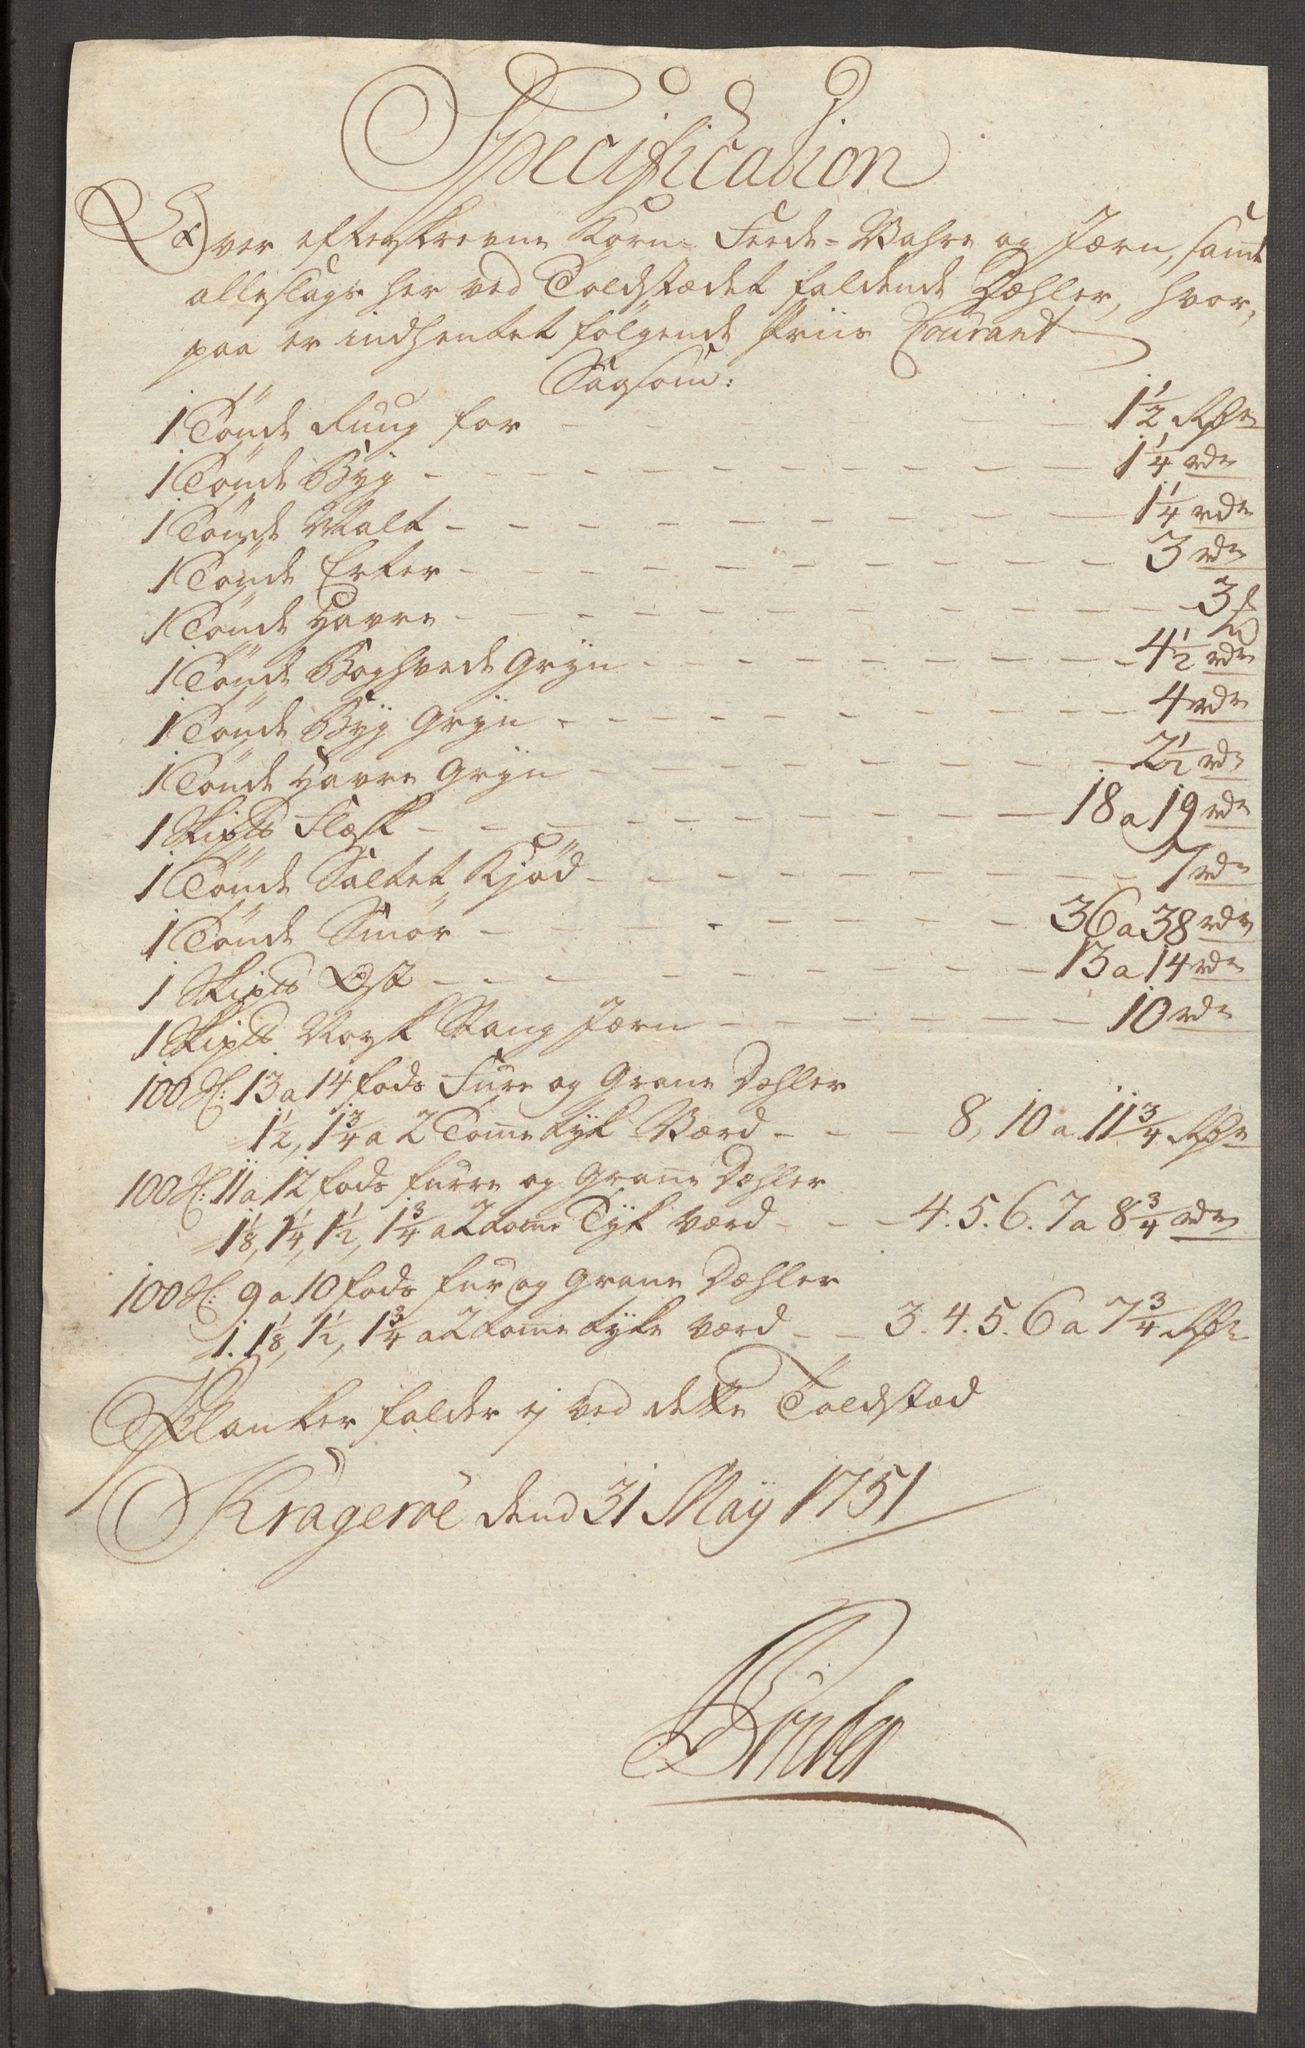 Specification
Over efterskrevne Korn- Feede-Wahre og Jærn, samt
alleslags her ved Toldstædet faldende Dæhler, hvor,
paa er indhentet følgende Priis Courant
Saasom:
1 Tönde Rug for - - - 1 1/2 Rdr
1 Tönde Byg - - - 1 1/4 rdr
1 Tönde Malt - - - 1 1/4 rdr
1 Tönde Erter - - - 3 rdr
1 Tönde Havre - - - 3
1 Tönde Boghvede Gryn - - - 4 1/2 rdr
1 Tönde Byg Gryn - - - 4 rdr
1 Tönde Havre Gryn - - - 2 1/2 rdr
1 Skipd Flæsk - - - 18 a 19 rdr
1 Tönde Saltet Kjød - - - 7 rdr
1 Tönde Smør - - - 36 a 38 rdr
1 Skipd Ost - - - 13 a 14 rdr
1 Skipd Norsk Stang Jærn - - - 10 rdr
100 H: 13 a 14 fods Fure og Grane Dæhler
1 1/2, 1 3/4 a 2 Tomme tyk Værd - - - 8, 10 a 11 3/4 Rdr
100 H: 11 a 12 fods furre og Grane Dæhler
1 1/8, 1 1/4, 1 1/2, 1 3/4 a 2 tomme Tyk værd - - - 4. 5. 6. 7 a 8 3/4 rdr
100 H: 9 a 10 fods fur og Grane Dæhler
1. 1 1/8, 1 1/2, 1 3/4 a 2 tomme tykke værd - - 3. 4. 5. 6 a 7 3/4 Rdr
Planker falder ej ved dette Toldstæd
Krageröe dend 31 Maÿ 1751